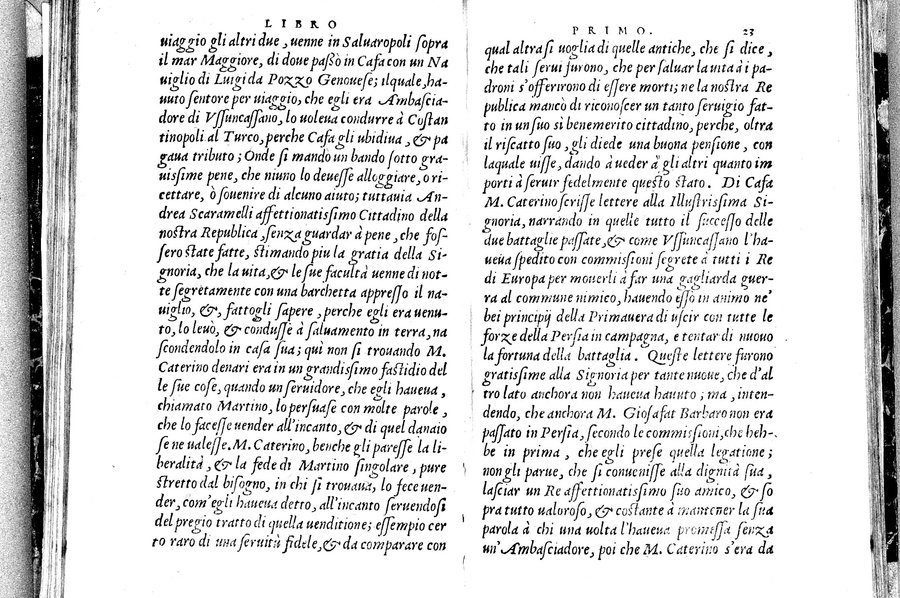 LIBRO
uiaggio gli altri due, uenne in Saluaropoli sopra
il mar Maggiore, di doue passò in Cafa con un Na
uiglio di Luigi da Pozzo Genouese; ilquale, ha-
uuto sentore per uiaggio, che egli era Ambascia-
dore di Vssuncassano, lo uoleua condurre à Costan
tinopoli al Turco, perche Cafa gli ubidiua, & pa
gaua tributo; Onde si mandò un bando sotto gra-
uissime pene, che niuno lo deuesse alloggiare, o ri-
cettare, ò souenire di alcuno aiuto; tuttauia An-
drea Scaramelli affettionatissimo Cittadino della
nostra Republica, senza guardar à pene, che fos-
sero state fatte, stimando piu la gratia della Si-
gnoria, che la uita, & le sue facultà uenne di not-
te segretamente con una barchetta appresso il na-
uiglio, &, fattogli sapere, perche egli era uenu-
to, lo leuò, & condusse à saluamento in terra, na
scondendolo in casa sua; quì non si trouando M.
Caterino denari era in un grandissimo fastidio del
le sue cose, quando un seruidore, che egli haueua,
chiamato Martino, lo persuase con molte parole,
che lo facesse uender all'incanto, & di quel danaio
se ne ualesse. M. Caterino, benche gli paresse la li-
beralità, & la fede di Martino singolare, pure
stretto dal bisogno, in chi si trouaua, lo fece uen-
der, com'egli haueua detto, all'incanto seruendosi
del pregio tratto di quella uenditione; essempio cer
to raro di una seruitù fidele, & da comparare con
PRIMO. 23
qual altra si uoglia di quelle antiche, che si dice,
che tali serui furono, che per saluar la uita à i pa-
droni s'offerirono di essere morti; ne la nostra Re
publica mancò di riconoscer un tanto seruigio fat-
to in un suo sì benemerito cittadino, perche, oltra
il riscatto suo, gli diede una buona pensione, con
laquale uisse, dando à ueder à gli altri quanto im
porti à seruir fedelmente questo stato. Di Cafa
M. Caterino scrisse lettere alla Illustrissima Si-
gnoria, narrando in quelle tutto il successo delle
due battaglie passate, & come Vssuncassano l'ha-
ueua spedito con commissioni segrete à tutti i Re
di Europa per mouerli à far una gagliarda guer-
ra al commune nimico, hauendo esso in animo ne'
bei principij della Primauera di uscir con tutte le
forze della Persia in campagna, e tentar di nuouo
la fortuna della battaglia. Queste lettere furono
gratissime alla Signoria per tante nuoue, che d'al
tro lato anchora non haueua hauuto; ma, inten-
dendo, che anchora M. Giosafat Barbaro non era
passato in Persia, secondo le commissioni, che heb-
be in prima, che egli prese quella legatione;
non gli parue, che si conuenisse alla dignità sua,
lasciar un Re affettionatissimo suo amico, & so
pra tutto ualoroso, & costante à mantener la sua
parola à chi una uolta l'haueua promessa senza
un'Ambasciadore, poi che M. Caterino s'era da